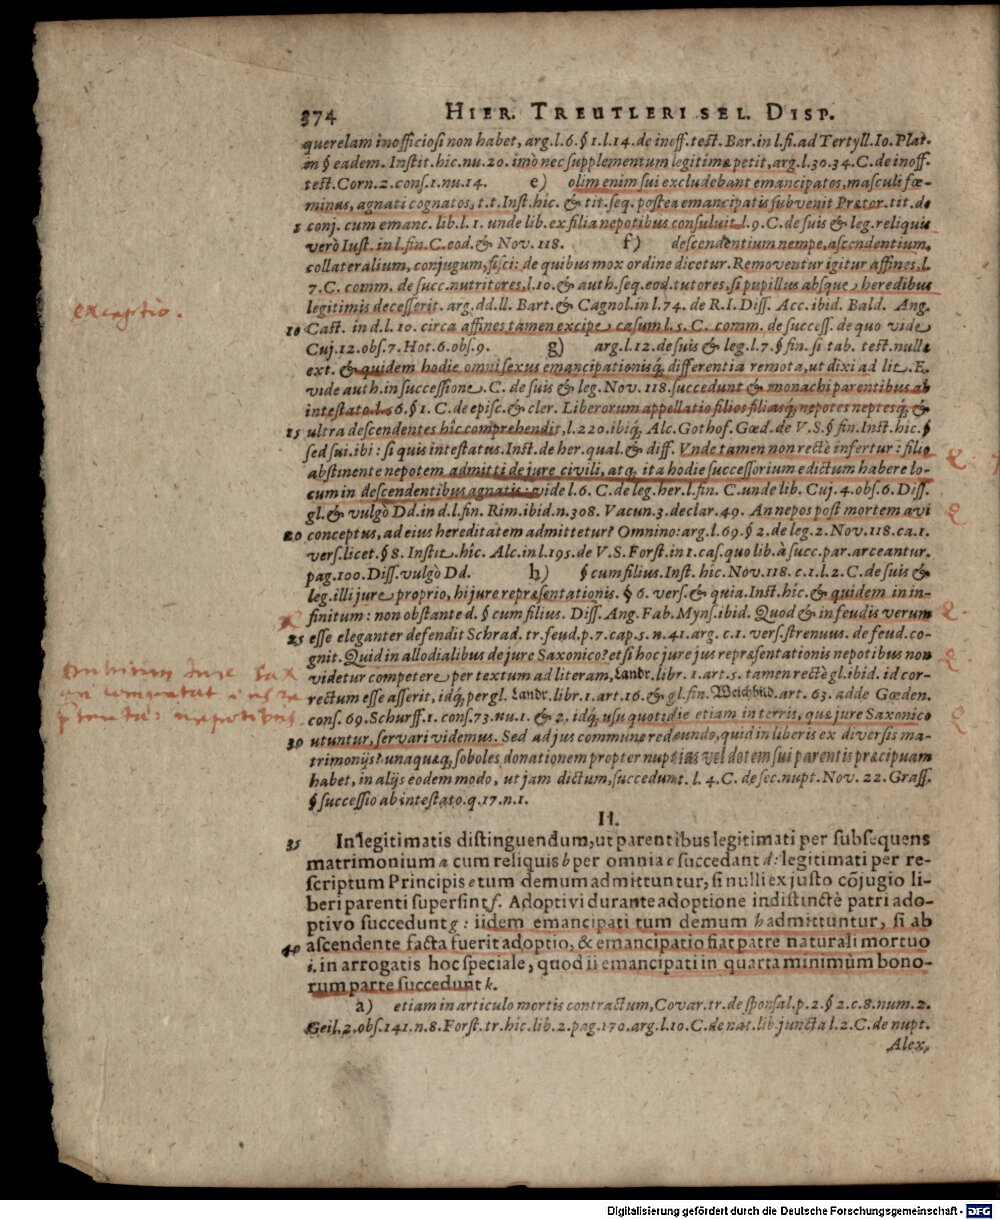 374 HIER. TREUTLERI SEL. DISP.
querelam inofficiosi non habet, arg. l. 6. § 1. l. 14. de inoff. test. Bar. in l. fi. ad Tertyll. Io. Plat.
in § eadem. Instit. hic. nu. 20. imò nec supplementum legitimæ petit, arg. l. 30. 34. C. de inoff.
test. Corn. 2. cons. 1. nu. 14. e) olim enim sui excludebant emancipatos, masculi fœ-
minas, agnati cognatos, t. t. Inst. hic. & tit. seq. postea emancipatis subvenit Prætor. tit. de
5 conj. cum emanc. lib. l. 1. unde lib. ex filia nepotibus consuluit l. 9. C. de suis & leg. reliquis
verò Iust. in l. fin. C. eod. & Nov. 118. f) descendentium nempe, ascendentium,
collateralium, conjugum, fisci: de quibus mox ordine dicetur. Removentur igitur affines, l.
7. C. comm. de succ. nutritores, l. 10. & auth. seq. eod. tutores, si pupillus absque heredibus
legitimis decesserit. arg. dd. ll. Bart. & Cagnol. in l. 74. de R. I. Diss. Acc. ibid. Bald. Ang.
exceptio.
10 Cast. in d. l. 10. circa affines tamen excipe casum l. 5. C. comm. de success. de quo vide
Cuj. 12. obs. 7. Hot. 6. obs. 9. g) arg. l. 12. de suis & leg. l. 7. § fin. si tab. test. nullæ
ext. & quidem hodie omni sexus emancipationisq́; differentia remota, ut dixi ad lit. E.
vide auth. in successione. C. de suis & leg. Nov. 118. succedunt & monachi parentibus ab
intestato. l. 56. § 1. C. de episc. & cler. Liberorum appellatio filios filiasq́; nepotes neptesq́; &
15 ultra descendentes hic comprehendit, l. 220. ibiq́; Alc. Gothof. Gœd. de V. S. § fin. Inst. hic. §
sed sui. ibi: si quis intestatus. Inst. de her. qual. & diff. Vnde tamen non rectè infertur: filio
abstinente nepotem admitti de jure civili, atq́; ita hodie successorium edictum habere lo-
cum in descendentibus agnatis: vide l. 6. C. de leg. her. l. fin. C. unde lib. Cuj. 4. obs. 6. Diss.
gl. & vulgò Dd. in d. l. fin. Rim. ibid. n. 308. Vacun. 3. declar. 49. An nepos post mortem avi
20 conceptus, ad eius hereditatem admittetur? Omnino: arg. l. 69. § 2. de leg. 2. Nov. 118. ca. 1.
vers. licet. § 8. Instit. hîc. Alc. in l. 195. de V. S. Forst. in 1. cas. quo lib. à succ. par. arceantur.
pag. 100. Diss. vulgò Dd. h) § cum filius. Inst. hic. Nov. 118. c. 1. l. 2. C. de suis &
leg. illi jure proprio, hi jure repræsentationis. § 6. vers. & quia. Inst. hic. & quidem in in-
finitum: non obstante d. § cum filius. Diss. Ang. Fab. Myns. ibid. Quod & in feudis verum
25 esse eleganter defendit Schrad. tr. feud. p. 7. cap. 5. n. 41. arg. c. 1. vers. strenuus. de feud. co-
gnit. Quid in allodialibus de jure Saxonico? etsi hoc jure jus repræsentationis nepotibus non
videtur competere per textum ad literam, Landr. libr. 1. art. 5. tamen rectè gl. ibid. id cor-
rectum esse asserit, idq́; per gl. Landr. libr. 1. art. 16. & gl. fin. Weichbild. art. 63. adde Gœden.
cons. 69. Schurff. 1. cons. 73. nu. 1. & 2. idq́; usu quotidie etiam in terris, quæ jure Saxonico
30 utuntur, servari videmus. Sed ad jus commune redeundo, quid in liberis ex diversis ma-
trimonijs? unaquæq́; soboles donationem propter nuptias vel dotem sui parentis præcipuam
habet, in alijs eodem modo, ut jam dictum, succedunt. l. 4. C. de sec. nupt. Nov. 22. Grass.
§ successio ab intestato. q. 17. n. 1.
II.
35 In legitimatis distinguendum, ut parentibus legitimati per subsequens
matrimonium a cum reliquis b per omnia c succedant d: legitimati per re-
scriptum Principis e tum demum admittuntur, si nulli ex justo cõjugio li-
beri parenti supersint f. Adoptivi durante adoptione indistinctè patri ado-
ptivo succedunt g: iidem emancipati tum demum h admittuntur, si ab
40 ascendente facta fuerit adoptio, & emancipatio fiat patre naturali mortuo
i. in arrogatis hoc speciale, quod ii emancipati in quarta minimùm bono-
rum parte succedunt k.
a) etiam in articulo mortis contractum, Covar. tr. de sponsal. p. 2. § 2. c. 8. num. 2.
Geil. 2. obs. 141. n. 8. Forst. tr. hic. lib. 2. pag. 170. arg. l. 10. C. de nat. lib. juncta l. 2. C. de nupt.
Alex.
Digitalisierung gefördert durch die Deutsche Forschungsgemeinschaft - DFG